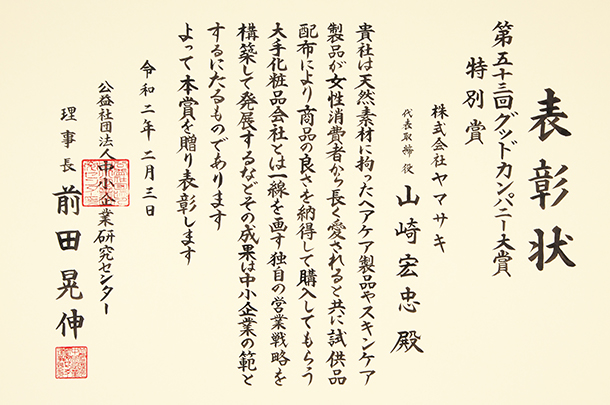 表彰状
第五十三回グッドカンパニー大賞
特別賞
株式会社ヤマサキ
代表取締役 山崎宏忠殿
貴社は天然素材に拘ったヘアケア製品やスキンケア
製品が女性消費者から長く愛されると共に試供品
配布により商品の良さを納得して購入してもらう
大手化粧品会社とは一線を画す独自の営業戦略を
構築して発展するなどその成果は中小企業の範と
するにたるものであります
よって本賞を贈り表彰します
令和二年二月三日
公益社団法人中小企業研究センター
理事長 前田晃伸